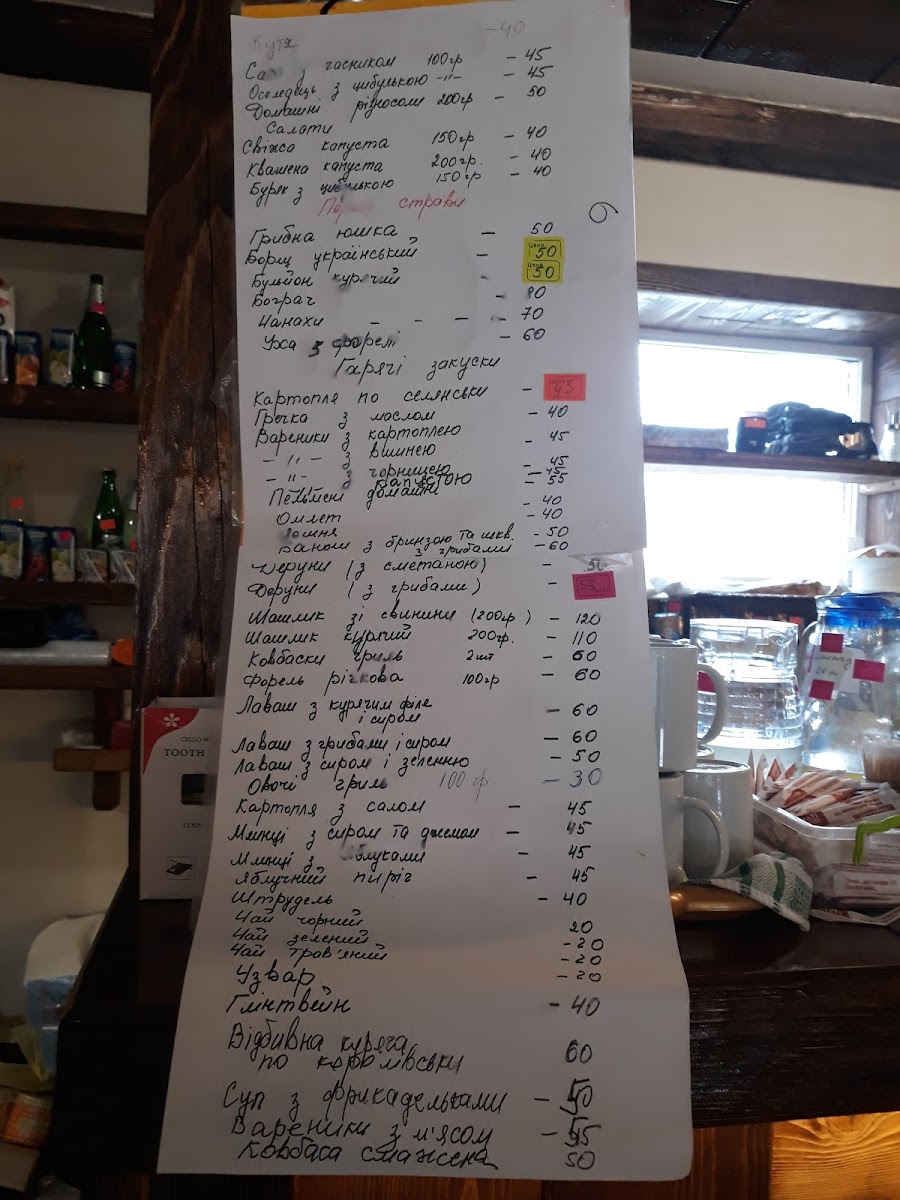 Кутя - 40
з часником 100гр - 45
Оселедець з цибулькою -"- - 45
Домашні різносоли 200гр - 50
Салати
Свіжа капуста 150гр - 40
Квашена капуста 200гр. - 40
Буряк з цибулькою 150гр - 40
страви
6
Грибна юшка - 50
Борщ український - ціна 50
Бульйон курячий ціна 50
Бограч - 80
Чанахи - - - - 70
Уха з форелі - 60
Гарячі закуски
Картопля по селянськи - 45
Гречка з маслом - 40
Вареники з картоплею - 45
-"- з вишнею - 45
-"- з чорницею - 45
капустою - 55
Пельмені домашні
Омлет - 40
- 40
Банош з бринзою та шкв. - 50
з грибами - 60
Деруни (з сметаною) - 50
Деруни (з грибами) - 55
Шашлик зі свинини (200гр) - 120
Шашлик курячий 200гр. - 110
Ковбаски гриль 2шт - 60
Форель річкова 100гр - 60
Лаваш з курячим філе
і сиром - 60
Лаваш з грибами і сиром - 60
Лаваш з сиром і зеленню - 50
Овочі гриль 100 гр. - 30
Картопля з салом - 45
Млинці з сиром та джемом - 45
Млинці з яблуками - 45
Яблучний пиріг - 45
Штрудель - 40
Чай чорний 20
Чай зелений - 20
Чай трав'яний - 20
Узвар - 20
Глінтвейн - 40
Відбивна куряча
по королівськи 60
Суп з фрикадельками - 50
Вареники з м'ясом - 55
Ковбаса смажена 50
TOOTH